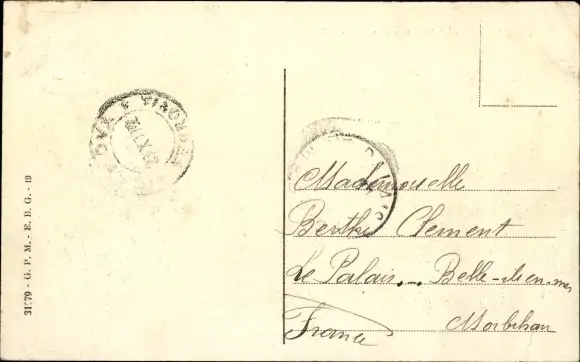 31579 - G. P. M. - E. B. G. - 19
Mademoiselle
Berthe Clement
Le Palais, Belle-ile en-mer
Morbihan
France